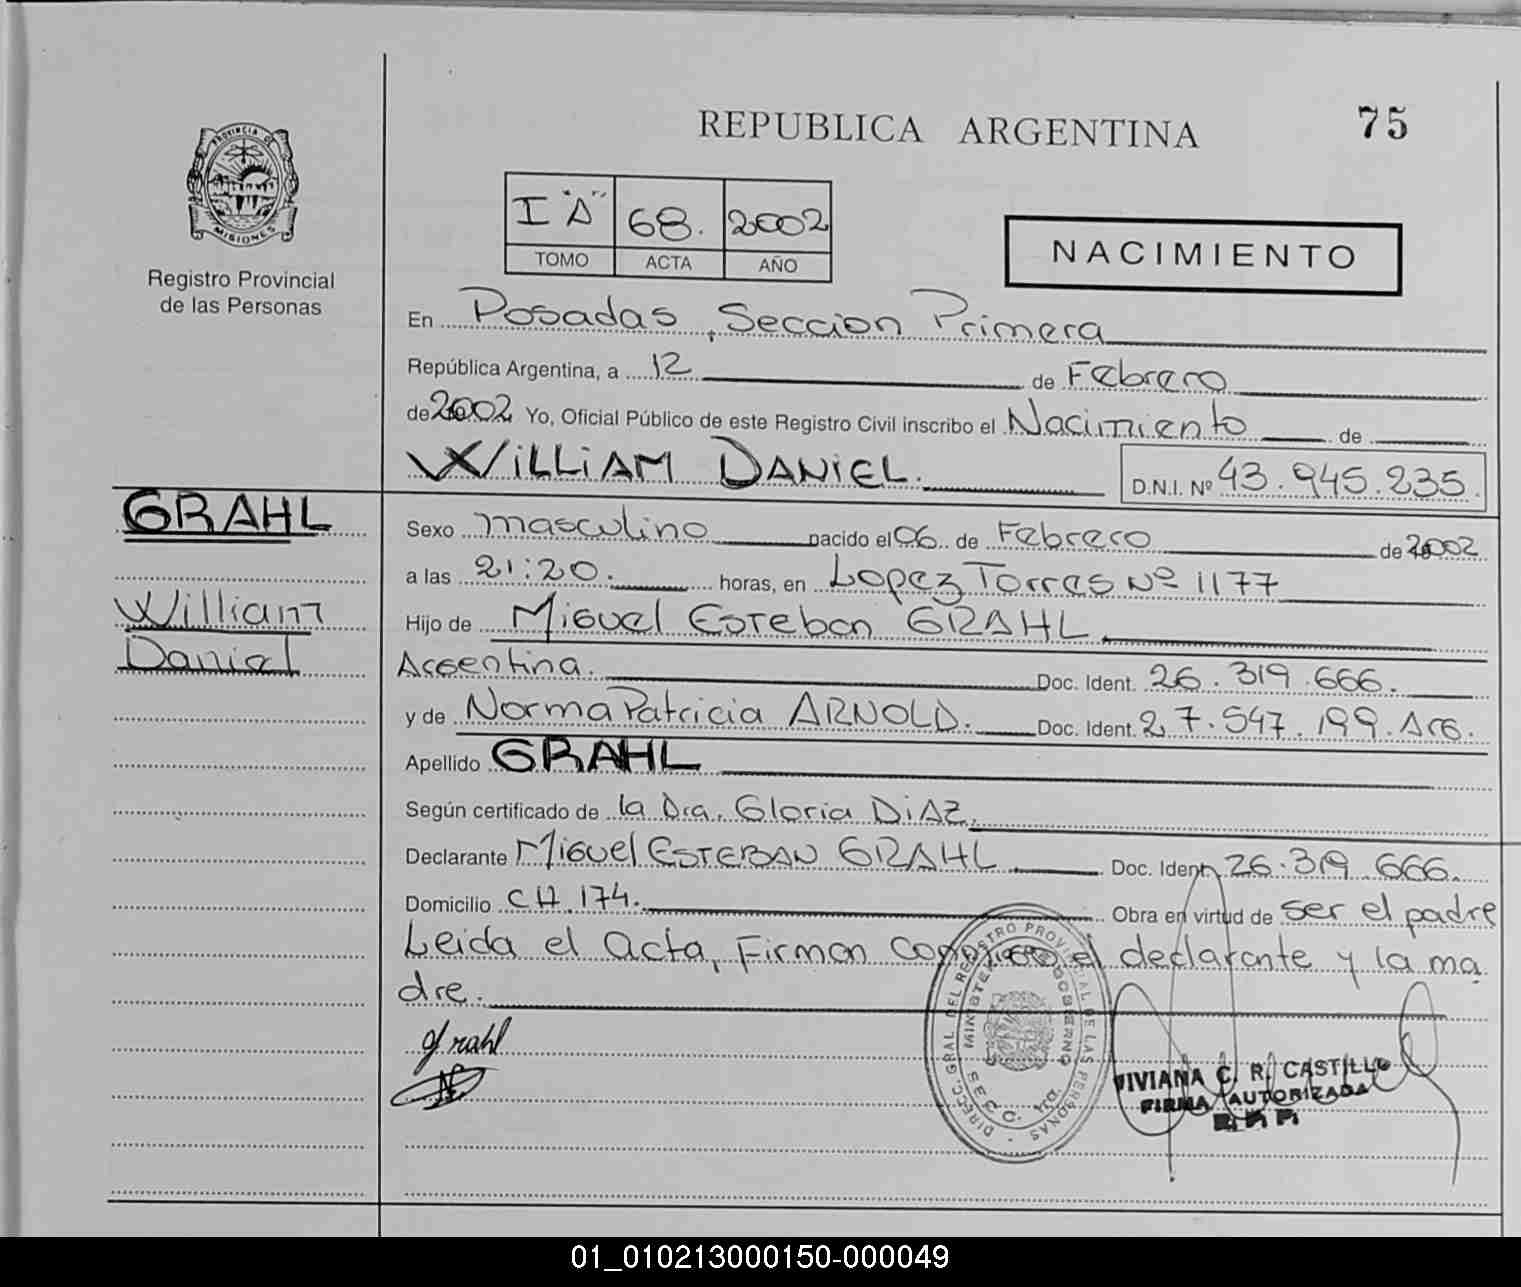 REPUBLICA ARGENTINA
75
PROVINCIA DE
MISIONES
Registro Provincial
de las Personas
I "A" 68. 2002
TOMO ACTA AÑO
NACIMIENTO
En Posadas, Seccion Primera
República Argentina, a 12 de Febrero
de 2002 Yo, Oficial Público de este Registro Civil inscribo el Nacimiento de
WILLIAM DANIEL. D.N.I. Nº 43.945.235.
GRAHL
William
Daniel
Sexo masculino nacido el 06 de Febrero de 2002
a las 21:20. horas, en Lopez Torres Nº 1177
Hijo de Miguel Esteban GRAHL
Argentina. Doc. Ident. 26.319.666.
y de Norma Patricia ARNOLD. Doc. Ident. 27.547.199. Arg.
Apellido GRAHL
Según certificado de la Dra. Gloria DIAZ.
Declarante Miguel ESTEBAN GRAHL Doc. Ident. 26.319.666.
Domicilio CH. 174. Obra en virtud de ser el padre
Leida el acta, Firman conmigo el declarante y la ma
dre.
Grahl
DIREC. GRAL. DEL REGISTRO PROVINCIAL DE LAS PERSONAS
VIVIANA C. R. CASTILLO
FIRMA AUTORIZADA
R. P. P.
01_010213000150-000049